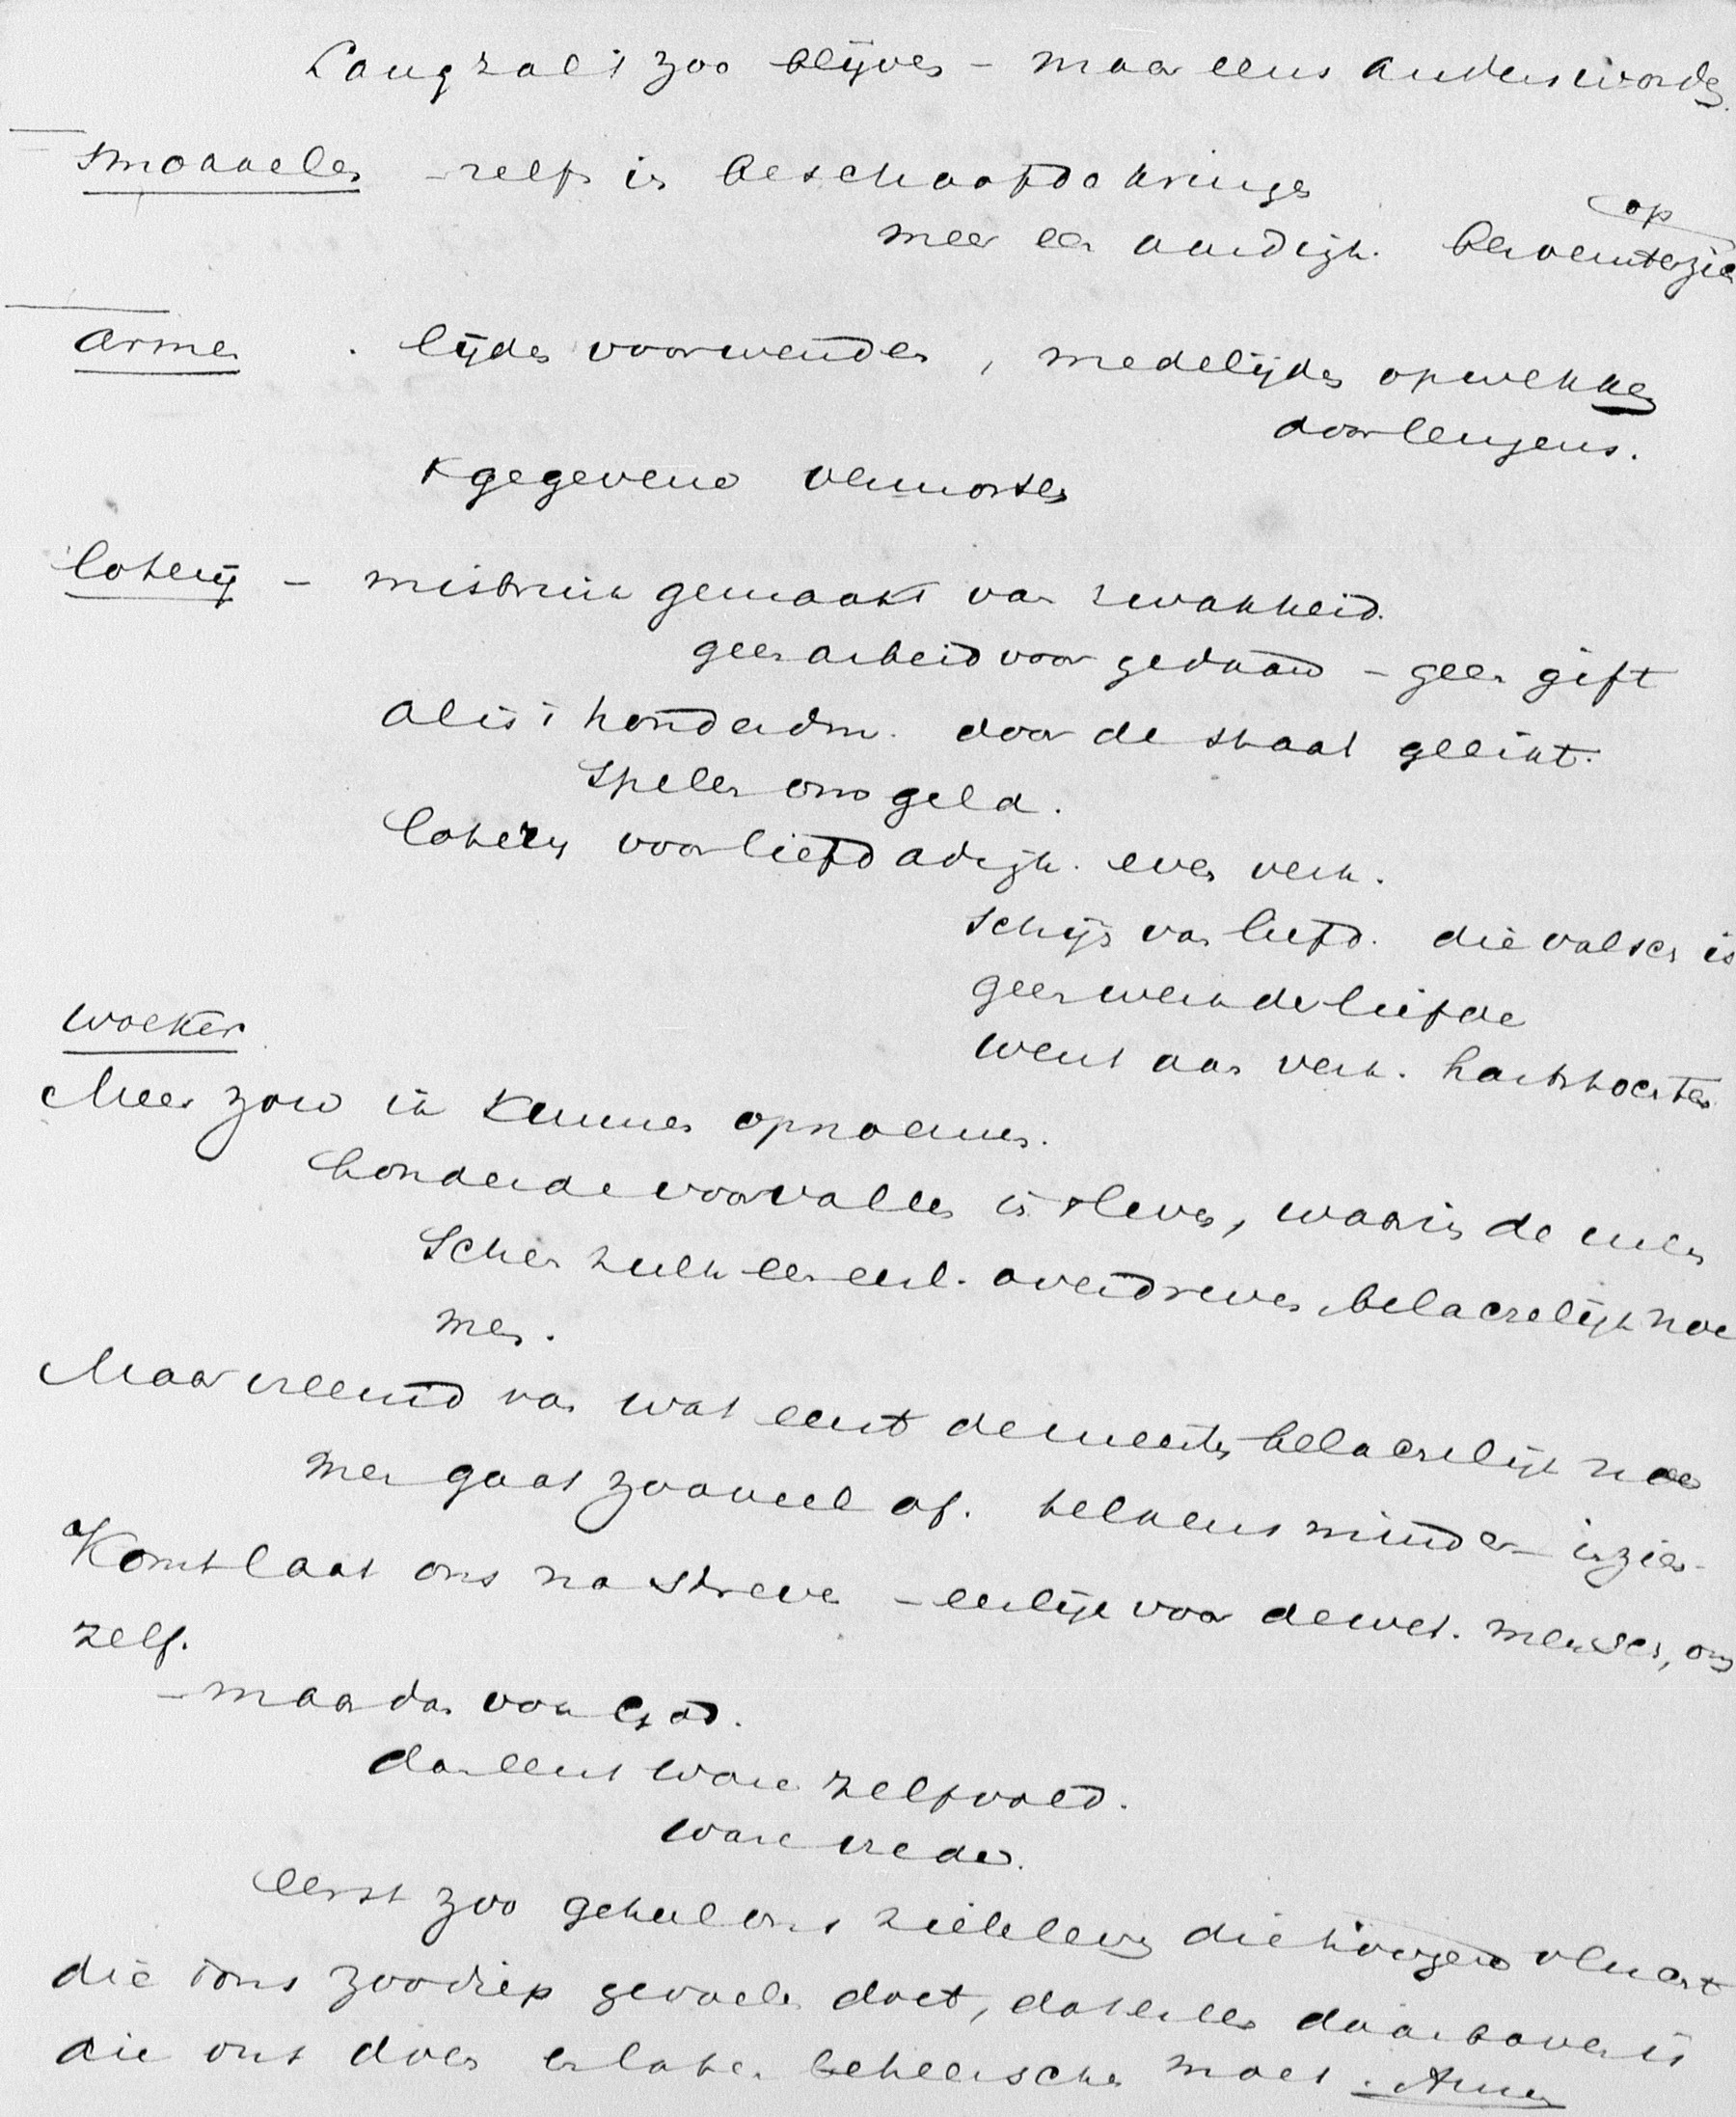 Lang zal 't zoo blijven – maar eens anders worden.
smokkelen – zelfs in beschaafde kringen
op
meer een aardigh.
armen . lijden voorwenden, medelijden opwekken
door leugens.
't gegevene vermorsen
loterij – misbruik gemaakt van zwakheid.
geen arbeid voor gedaan – geen gift
al is 't honderdm. door de staat geeikt.
spelen om geld.
loterij voor liefdadigh. even verk.
schijn van liefd. die valsch is
geen werk der liefde
went aan verk. hartstochten
woeker
Meer zou ik kunnen opnoemen.
honderde voorvallen in 't leven, waarin de men
schen zulk een eerl. overdreven, belachelijk noe
men.
Maar vreemd van wat eerst de meesten belachelijk noe
men gaat zooveel af. telkens minder – inzien –
Komt laat ons na streven – eerlijk voor de wet. menschen, ons
zelf.
– maar dan voor God.
dan eerst ware zelfvold.
ware vrede.
eerst zoo geheel ons zieleleven die hoogere vlucht
die ons zoo diep gevoelen doet, dat er een daarboven is
die ons doen en laten beheerschen moet. Amen